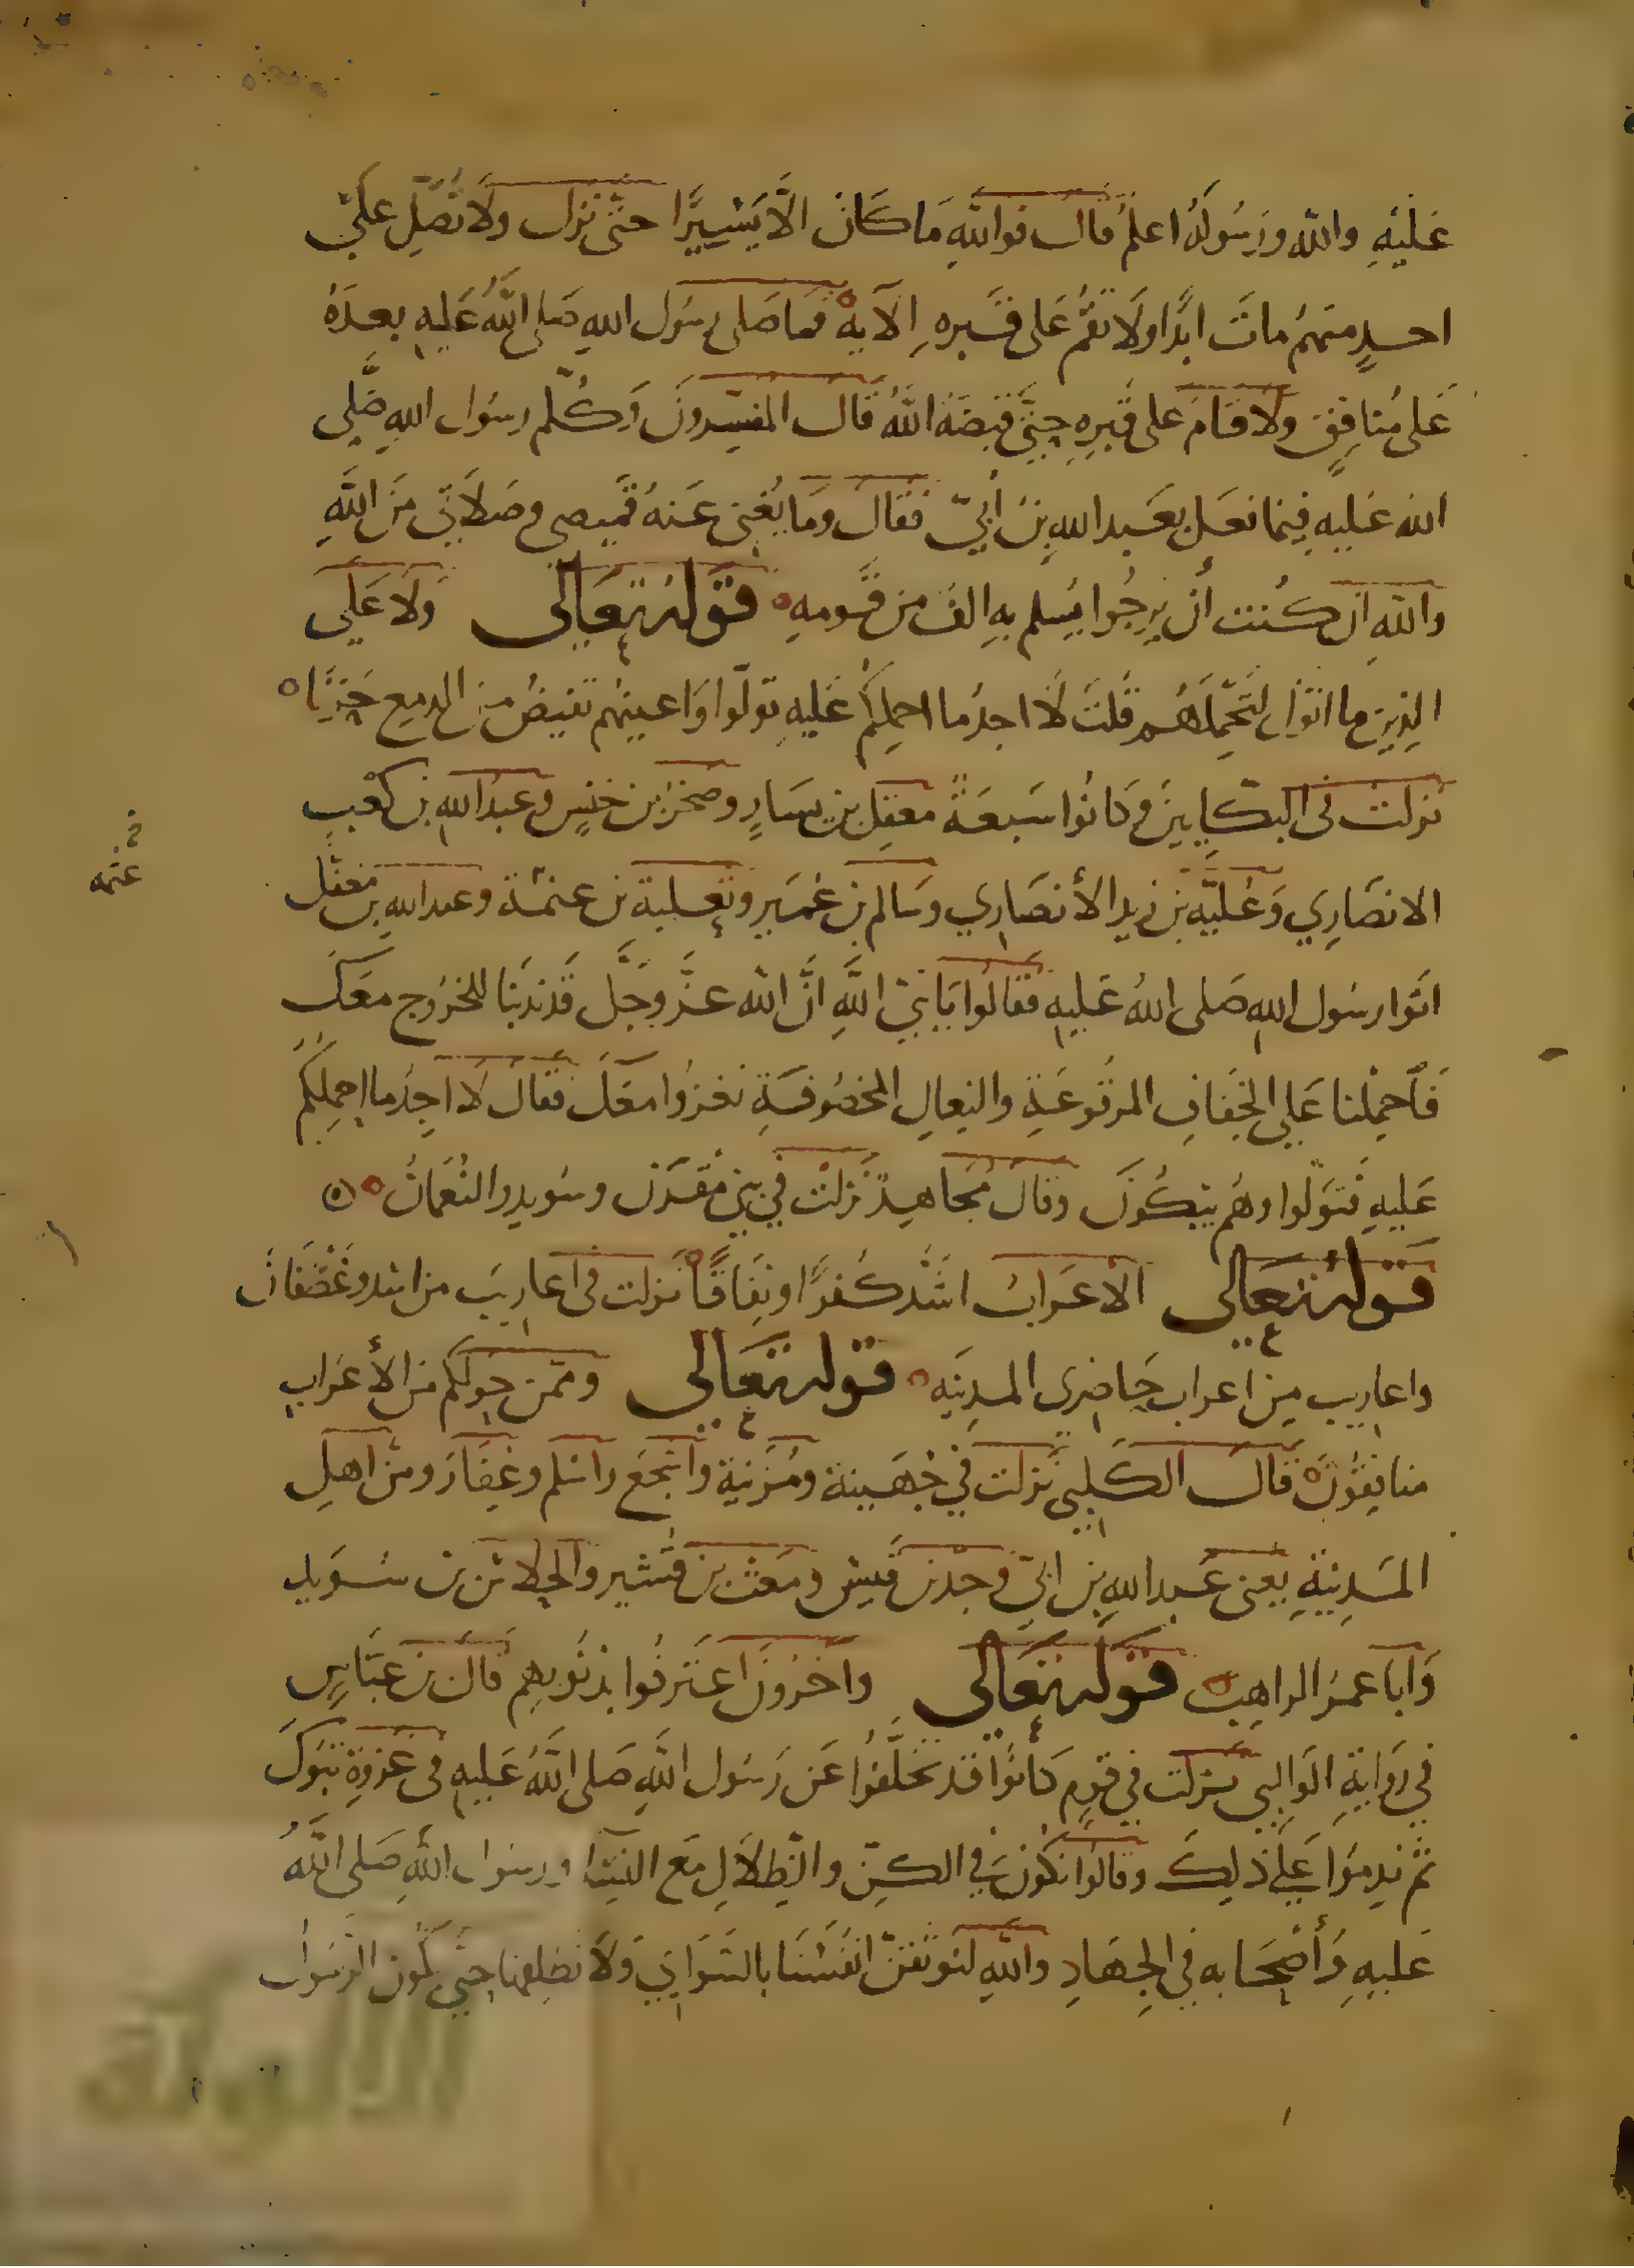 عَليْهِ والله ورَسُولهُ اعلمُ قال فوالله مَا كَانَ الَّا يَسِيرًا حتَّى نزل ولَا تُصَلِّ علَى
احدٍ منهمُ مات ابدًا ولَا تقُم عَلى قَبره الآيه فمَا صَلى رسُول اللهِ صَلى اللَّه عَليهِ بعدَهُ
عَلى مُنافِقٍ ولَا قَامَ على قبرِهِ حتَّى قبَضَهُ اللهُ قال المفسِرونَ وَكُلّم رسوُل اللهِ صَّلى
الله عَليهِ فِيمَا فعَل بعَبد اللهِ بنُ أُبيّ فقَالَ ومَا يُغني عَنهُ قَميصى وصَلَاتي مَنَ اللَّهِ
واللهِ ان كُنت أن يرجُوا يُسلم بهِ الف من قَومهِ قَولهُ تعَالى ولَا عَلَى
الذِين ما اتوا لتَحْمِلَهُم قلتَ لَا اجدُ ما احملكم عَليهِ تولَّوا وَاعينهُم تفيضُ من الدمع حَزنًا
نزلت في البكّايينَ وكَانُوا سَبعَةً معقِل بن يسَارٍ وصَخرُ بن خنيسٍ وعبدُ الله بن كعْبٍ
الانصَارِي وَعُليَّه بن زيد الأنصَارِي وسَالم بن عُمَيرٍ وثعلبة بن عنمَة وعبد اللهِ بن مغفل
عنمه
اتَوا رسُول اللهِ صَلى اللهُ عَليهِ فقالُوا يَا نبيَّ اللَّهِ انَّ الله عزَّ وجَلَّ قَد ندبَنَا للخرُوج معَكَ
فَاحْمِلنا عَلى الخِفَافِ المرقُوعَةِ والنِعالِ المخصُوفَةِ نغزُوا معَكَ فقَالَ لَا اجِدُ ما احمِلكُم
عَليهِ فتَولّوا وهُم يبكُونَ وقالَ مُجَاهِدٌ نزلَتْ في بني مُقَرن وسُويد والنُعمَانُ
قَولهُ تعَالى الأعرَابُ اشَدُّ كُفرًا ونِفَاقًا نزلت في اعارِيبَ من اسَد وغَطفَان
واعارِيب مِن اعراب حَاضِرى المدِينَه قَوله تعَالى وممّن حَولكم من الأعرَابِ
منافِقُونَ قَالَ الكَلبِي نزلت في جُهَينة ومُزَينة وأشجَع واسلم وغِفَارَ ومن اهلِ
المَدِينةِ يعنى عَبد اللهِ بن ابيّ وجد بن قَيسٍ ومعتب بن قُشيرٍ والجلاس بن سُويدٍ
وَابَا عمرُ الراهِب قَولهُ تعَالى وآخرُونَ اعتَرفُوا بذنُوبهِم قَالَ بن عبَّاسٍ
في رِوَايَةِ الوَالِبِي نزلت في قَومٍ كانُوا قد تَخلَّفُوا عَن رَسُول اللَّهِ صَلى اللَّهُ عَليهِ في غَزوَةِ تبُوكَ
ثم ندِمُوا عَلى ذلِكَ وقَالوا نكُون في الكِنّ والظِلالِ مَع النِسَا ورسوُل اللهِ صَلى اللَّه
عَليهِ وَأَصْحَابه في الجِهَادِ واللَّهِ لنُوثقنّ انفُسَنَا بالسَوَارِي وَلَا نطلقها حتى يكُون الرسُول
الألوكة